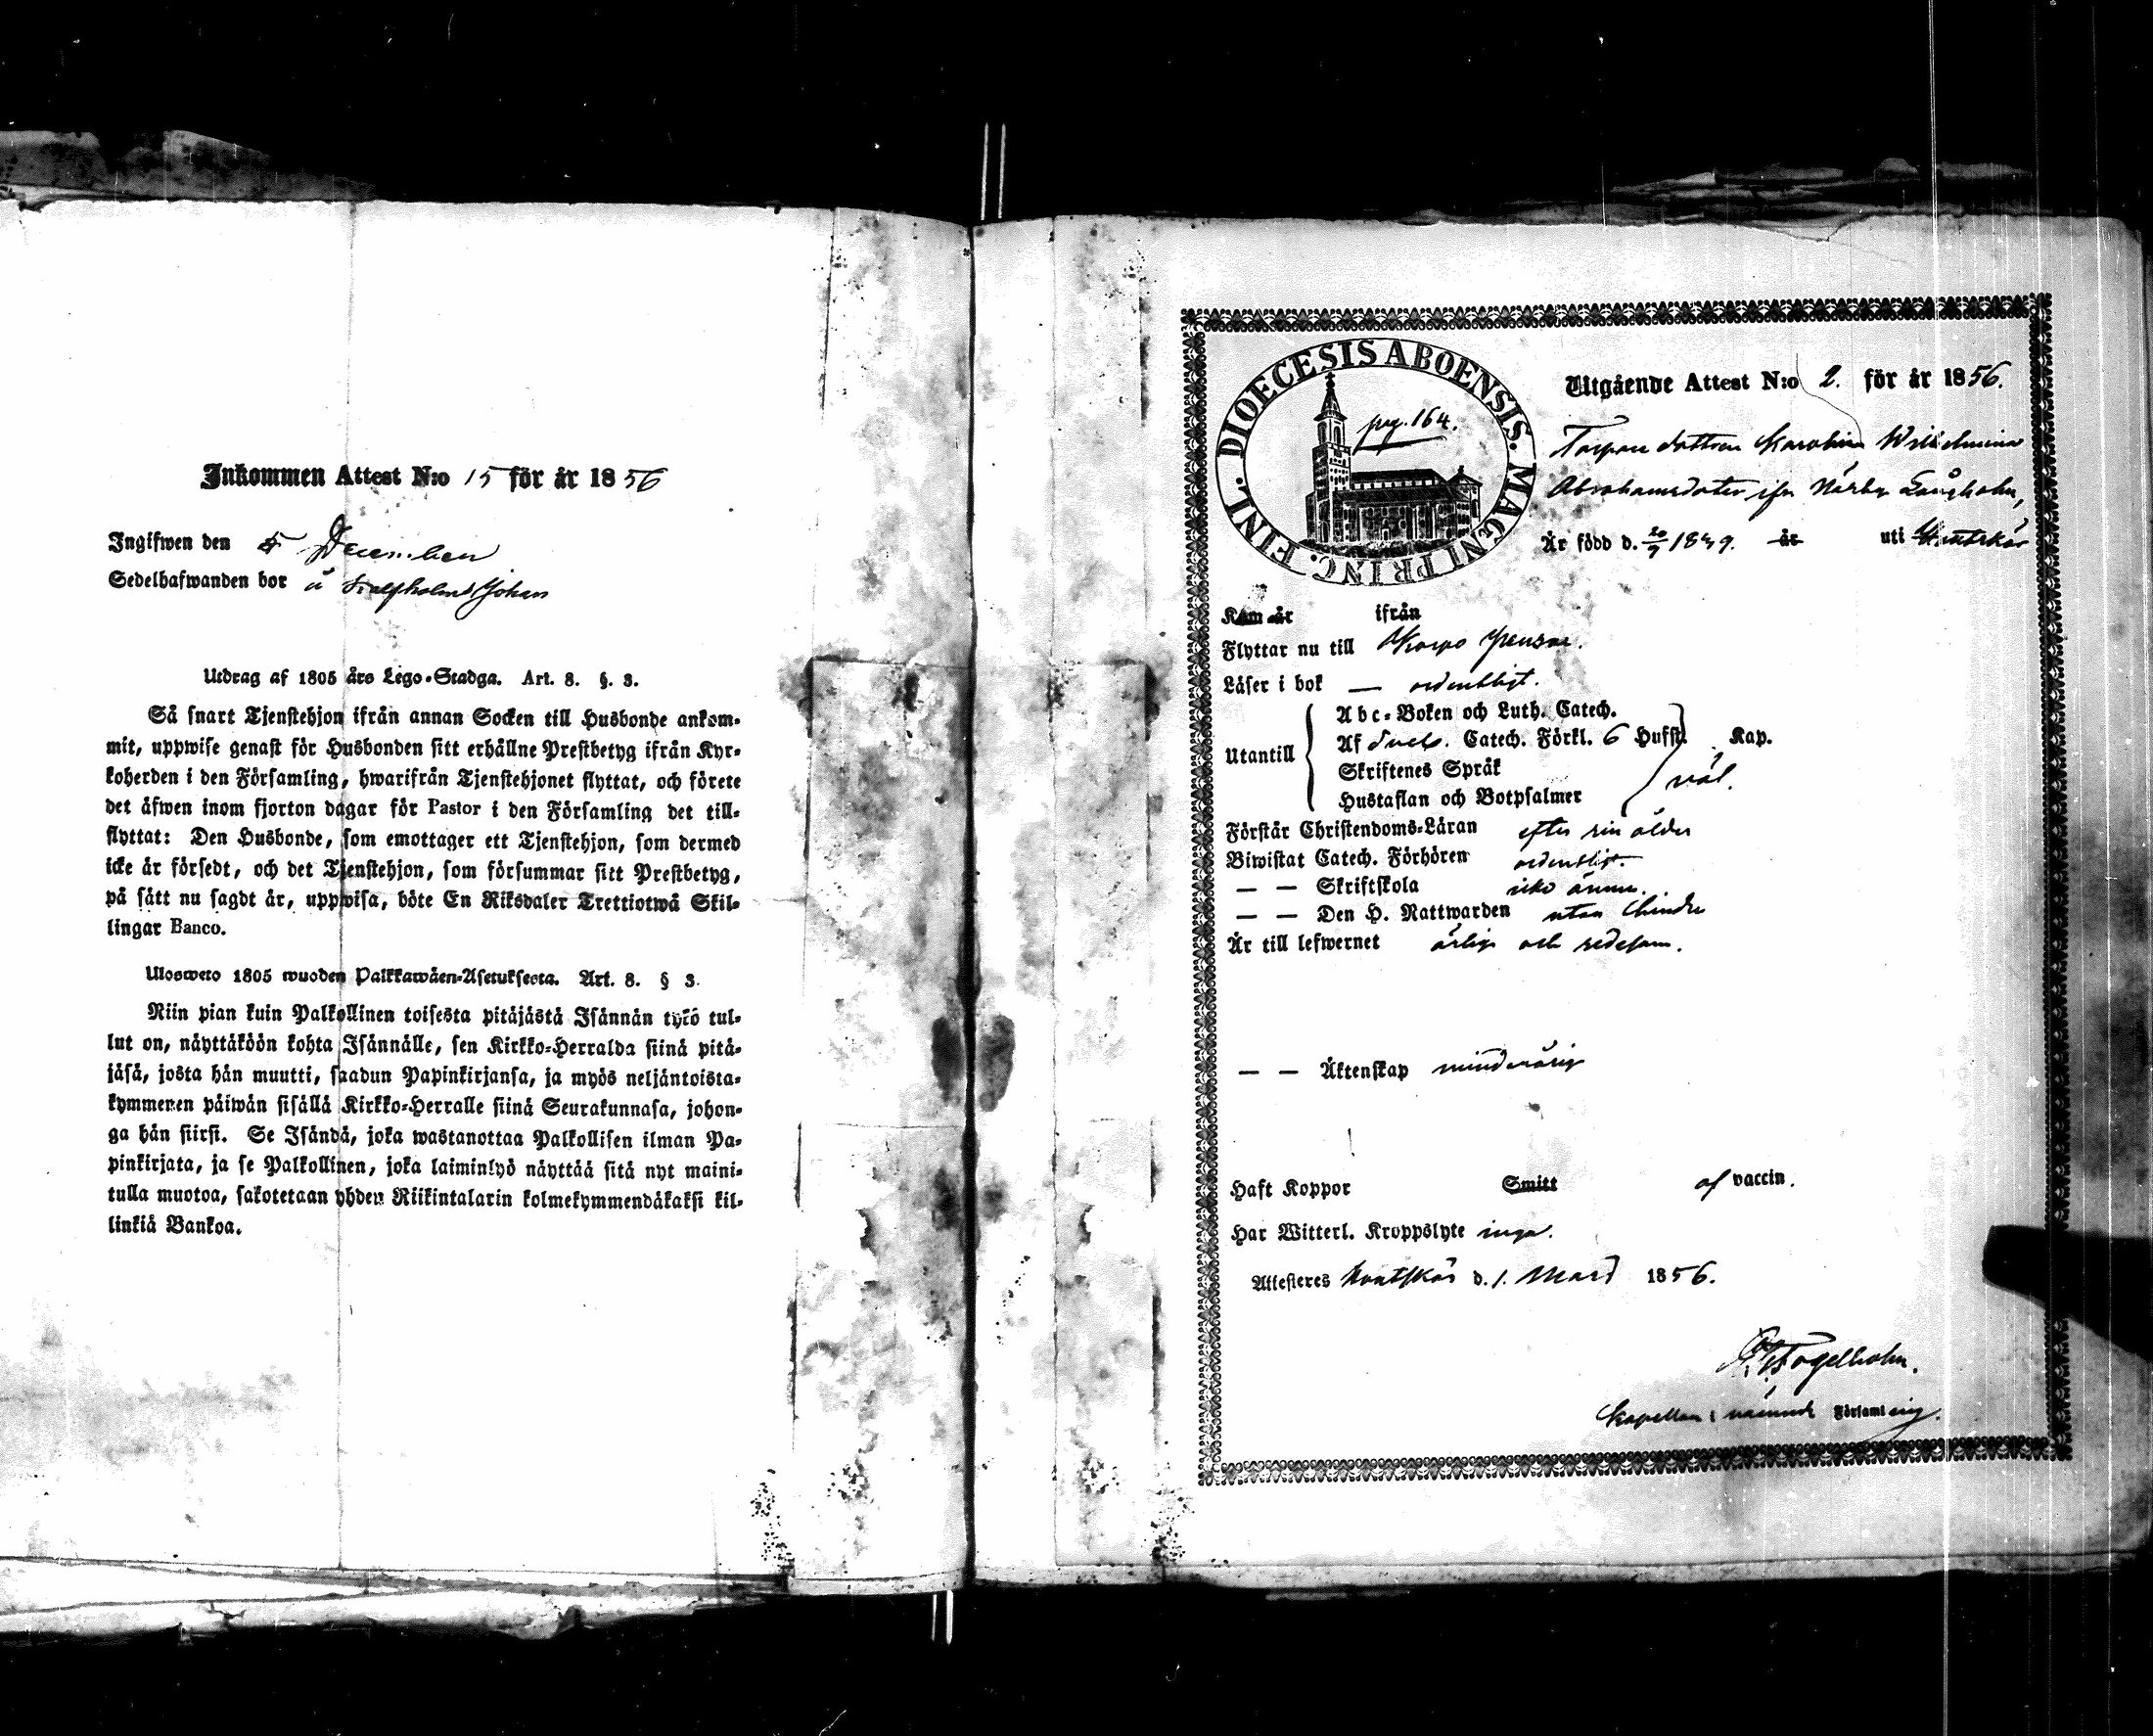 Inkommen Attest N:o 15 för år 1856
Ingifwen den 5 December
Sedelhafwanden bor å Kalfholmd Johan
Utdrag af 1805 års Lego-Stadga. Art. 8. §. 3.
Så snart Tjenstehjon ifrån annan Socken till Husbonde ankom-
mit, uppwise genast för Husbonden sitt erhållne Prestbetyg ifrån Kyr-
koherden i den Församling, hwarifrån Tjenstehjonet flyttat, och förete
det äfwen inom fjorton dagar för Pastor i den Församling det till-
flyttat: Den Husbonde, som emottager ett Tjenstehjon, som dermed
icke är försedt, och det Tjenstehjon, som försummar sitt Prestbetyg,
på sätt nu sagdt är, uppwisa, böte En Riksdaler Trettiotwå Skil-
lingar Banco.
Uloswето 1805 wuoden Palkkawäen-Asetuksesta. Art. 8. § 3.
Niin pian kuin Palkollinen toisesta pitäjästä Isännän tykö tul-
lut on, näyttäköön kohta Isännälle, sen Kirkko-Herralda siinä pitä-
jäsä, josta hän muutti, saadun Papinkirjansa, ja myös neljäntoista-
kymmenen päiwän sisällä Kirkko-Herralle siinä Seurakunnasa, johon-
ga hän siirsi. Se Isändä, joka wastanottaa Palkollisen ilman Pa-
pinkirjata, ja se Palkollinen, joka laiminlyö näyttää sitä nyt maini-
tulla muotoa, sakotetaan yhden Riikintalarin kolmekymmendäkaksi kil-
linkiä Bankoa.
DIOECESIS ABOENSIS. MAGNI PRINC. FINL.
pag. 164.
Utgående Attest N:o 2. för år 1856.
Torpare dottren Karolina Wilhelmina
Abrahamsdoter ifrn Närby Långholm,
Är född d. 20/9 1849. år uti Houtskär
Kom år ifrån
Flyttar nu till Korpo
Läser i bok — ordentligt.
Utantill
Abc-Boken och Luth. Catech.
Af Svebs. Catech. Förkl. 6 Hufst. Kap.
Skriftenes Språk
Hustaflan och Botpsalmer
väl.
Förstår Christendoms-Läran efter sin ålder
Biwistat Catech. Förhören ordentligt.
— — Skriftskola icke ännu.
— — Den H. Nattwarden utan hinder
Är till lefwernet ärlig och sedesam.
— — Äktenskap minderårig
Haft Koppor Smitt af vaccin.
Har Witterl. Kroppslyte inga.
Attesteres Houtskär d. 1. Mars 1856.
Fogelholm.
Kapellan i nämnde Församling.